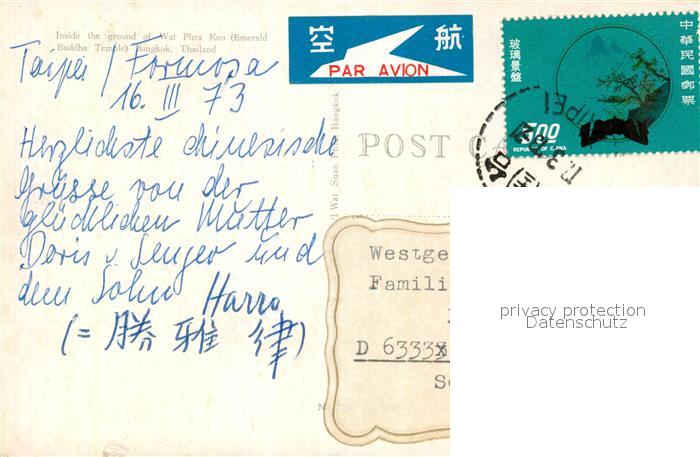 Inside the ground of Wat Phra Keo (Emerald
Buddha Temple) Bangkok, Thailand
Taipei / Formosa
16. III 73
Herzlichste chinesische
Grüsse von der
glücklichen Mutter
Doris v. Senger und
dem Sohn Harro
(= 勝雅律)
空航
PAR AVION
POST CA
中華民國郵票
玻璃景盤
5.00
REPUBLIC OF CHINA
TAIPEI
Westge
Famili
D 6333
privacy protection
Datenschutz